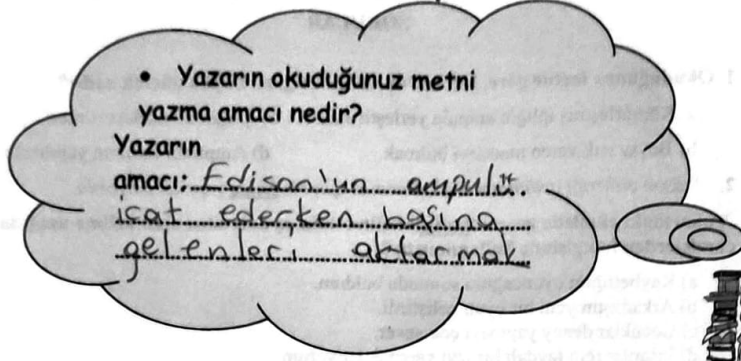 • Yazarın okuduğunuz metni
yazma amacı nedir?
Yazarın
amacı: Edison'un ampulü
icat ederken başına
gelenleri aktarmak